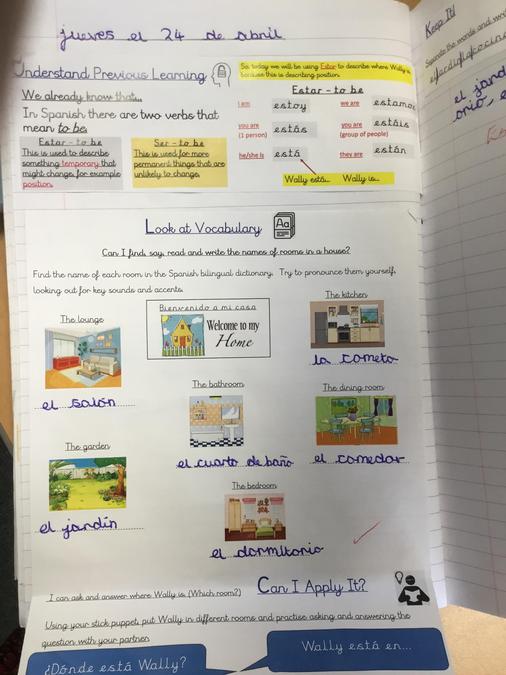 jueves el 24 de abril
Understand Previous Learning
So, today we will be using Estar to describe where Wally is,
because this is describing position.
We already know that...
In Spanish there are two verbs that
mean to be.
Estar - to be
This is used to describe
something temporary that
might change, for example
position.
Ser - to be
This is used for more
permanent things that are
unlikely to change.
Estar - to be
I am estoy we are estamos
you are (1 person) estás you are (group of people) estáis
he/she is está they are están
Wally está... Wally is...
Look at Vocabulary
Aa
Can I find, say, read and write the names of rooms in a house?
Find the name of each room in the Spanish bilingual dictionary. Try to pronounce them yourself,
looking out for key sounds and accents.
The lounge
el salón
Bienvenido a mi casa
Welcome to my
Home
The kitchen
la cometa
The bathroom
el cuarto de baño
The dining room
el comedor
The garden
el jardín
The bedroom
el dormitorio
I can ask and answer where Wally is. (Which room?)
Can I Apply It?
Using your stick puppet, put Wally in different rooms and practise asking and answering the
question with your partner.
¿Dónde está Wally?
Wally está en...
Keep It!
Separate the words and
el jard